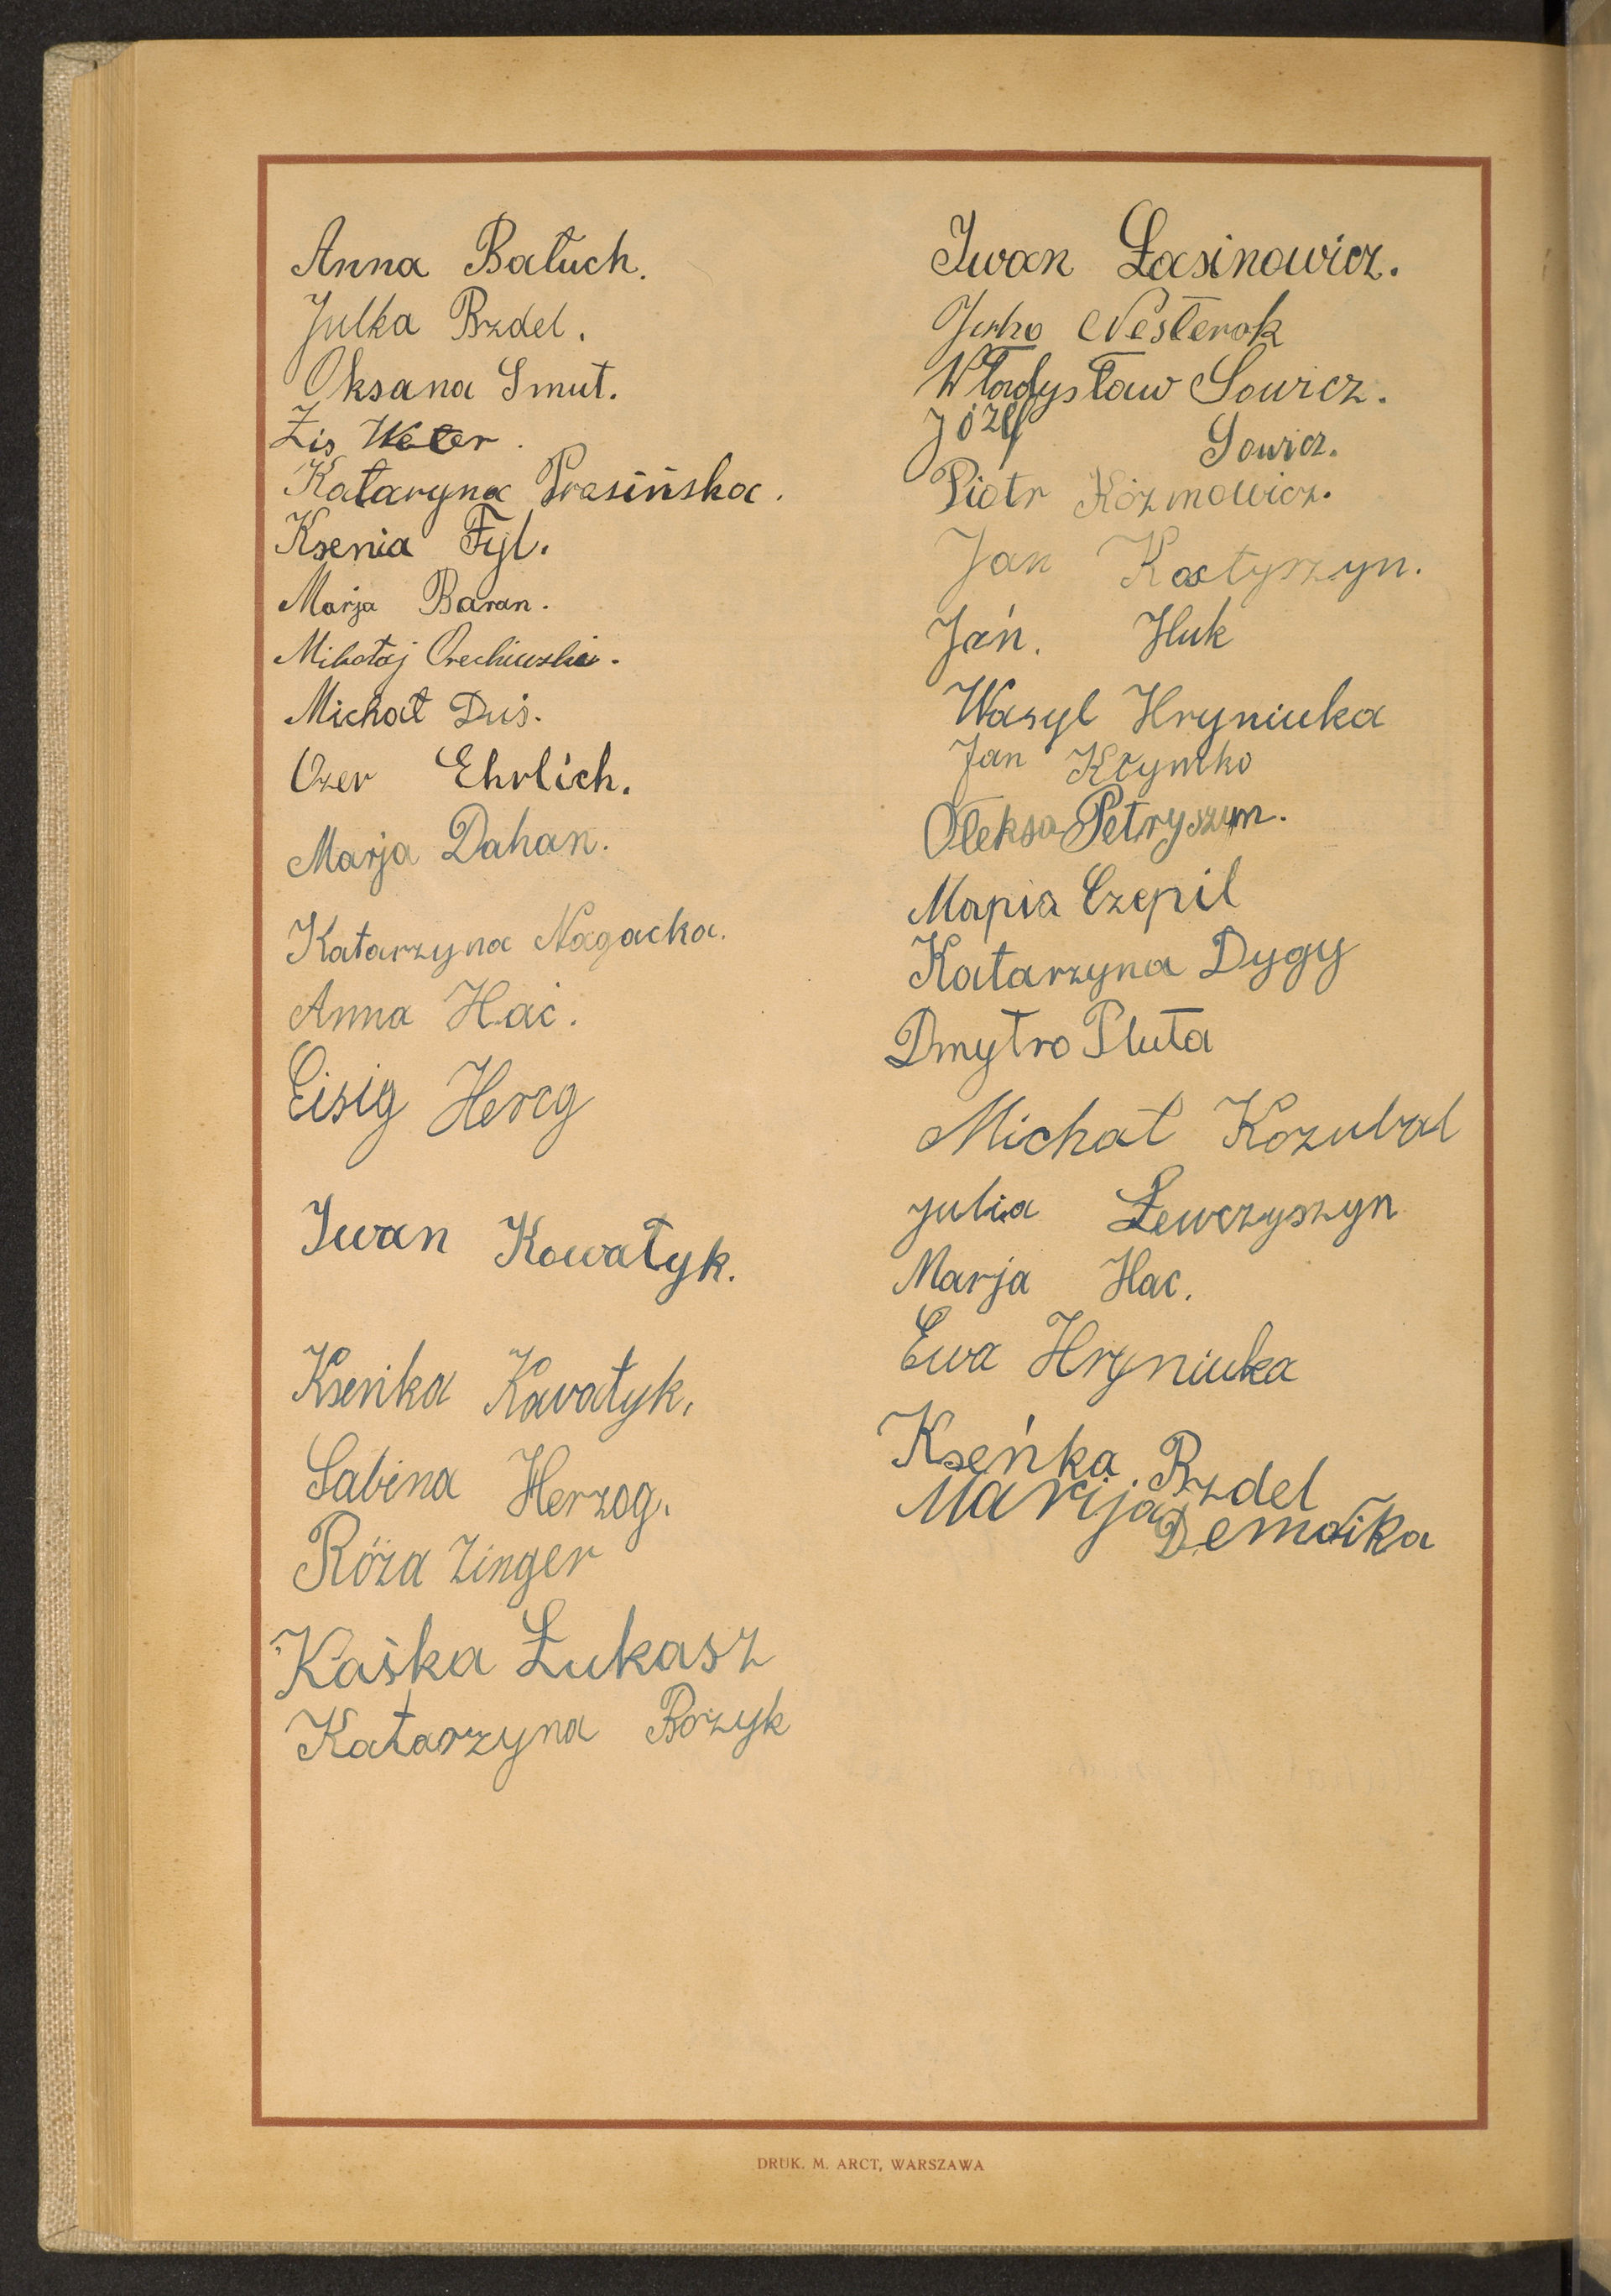 Anna Bałuch.
Julka Bzdel.
Oksana Smut.
Zis Weter.
Kataryna Prasińska.
Ksenia Fyl.
Marja Baran.
Mikołaj Orechiwski.
Michał Duś.
Ozer Ehrlich.
Marja Dahan.
Katarzyna Nagacka.
Anna Hać.
Eisig Hercg
Iwan Kowałyk.
Kseńka Kawałyk.
Sabina Herzog.
Róża Zinger
Kaśka Łukasz
Katarzyna Bozyk
Iwan Łasinowicz.
Jurko Nesterok
Władysław Sowicz.
Józef Sowicz.
Piotr Kózmowicz.
Jan Kostyszyn.
Jań. Huk
Wasyl Hryniuka
Jan Klymko
Ołeksa Petryszyn.
Mapia Czepil
Katarzyna Dygy
Dmytro Pluta
Michał Kozubal
Julia Łewczyszyn
Marja Hac.
Ewa Hryniuka
Kseńka Bzdel
Marija Demcika
DRUK. M. ARCT, WARSZAWA